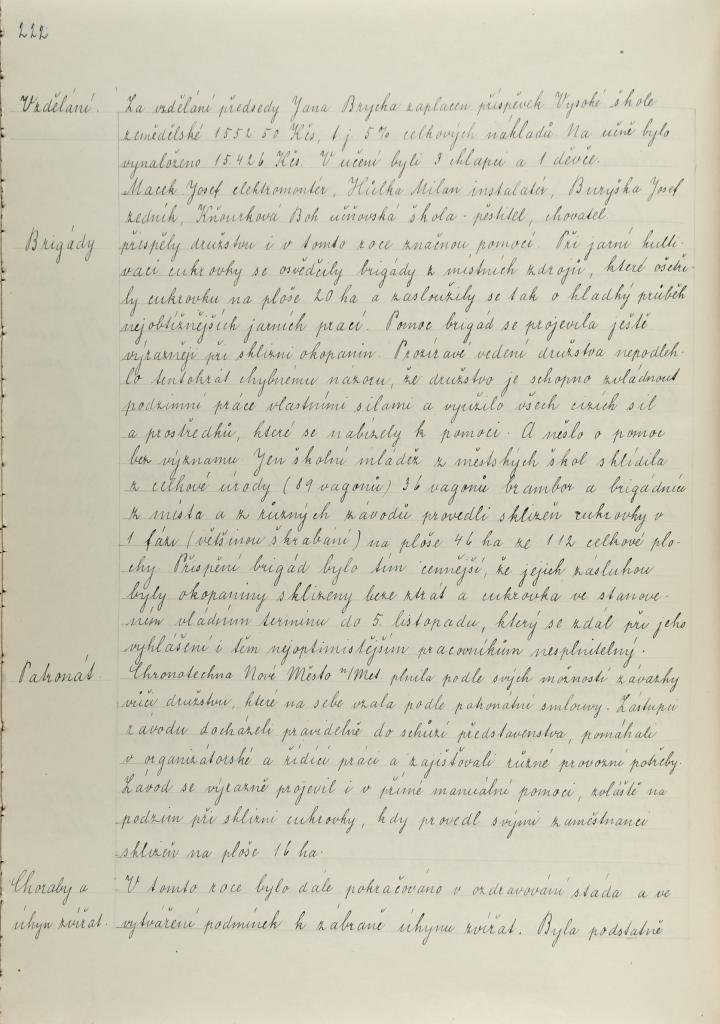 222
Vzdělání. Za vzdělání předsedy Jana Brycha zaplacen příspěvek Vysoké škole
zemědělské 1552 50 Kčs, t j 5% celkových nákladů. Na učně bylo
vynaloženo 15.426 Kčs. V učení byli 3 chlapci a 1 děvče.
Macek Josef elektromontér, Hůlka Milan instalatér, Buryška Josef
zedník, Kňourková Boh učňovská škola - pěstitel, chovatel
Brigády přispěly družstvu i v tomto roce značnou pomocí. Při jarní kulti-
vaci cukrovky se osvědčily brigády z místních zdrojů, které ošetři-
ly cukrovku na ploše 20 ha a zasloužily se tak o hladký průběh
nejobtížnějších jarních prací. Pomoc brigád se projevila ještě
výrazněji při sklizni okopanin. Prozíravé vedení družstva nepodleh-
lo tentokrát chybnému názoru, že družstvo je schopno zvládnout
podzimní práce vlastními silami a využilo všech cizích sil
a prostředků, které se nabízely k pomoci. A nešlo o pomoc
bez významu. Jen školní mládež z městských škol sklidila
z celkové úrody (89 vagonů) 36 vagonů brambor a brigádníci
z místa a z různých závodů provedli sklizeň cukrovky v
1 fázi (většinou škrabání) na ploše 46 ha ze 112 celkové plo-
chy. Přispění brigád bylo tím cennější, že jejich zásluhou
byly okopaniny sklizeny beze ztrát a cukrovka ve stanove-
ném vládním termínu do 5. listopadu, který se zdál při jeho
vyhlášení i těm nejoptimistějším pracovníkům nesplnitelný.
Patronát. Chronotechna Nové Město n/Met. plnila podle svých možností závazky
vůči družstvu, které na sebe vzala podle patronátní smlouvy. Zástupci
závodu docházeli pravidelně do schůzí představenstva, pomáhali
v organizátorské a řídící práci a zajišťovali různé provozní potřeby.
Závod se výrazně projevil i v přímé manuální pomoci, zvláště na
podzim při sklizni cukrovky, kdy provedl svými zaměstnanci
sklizeň na ploše 16 ha.
Choroby a V tomto roce bylo dále pokračováno v ozdravování stáda a ve
úhyn zvířat. vytváření podmínek k zábraně úhynu zvířat. Byla podstatně